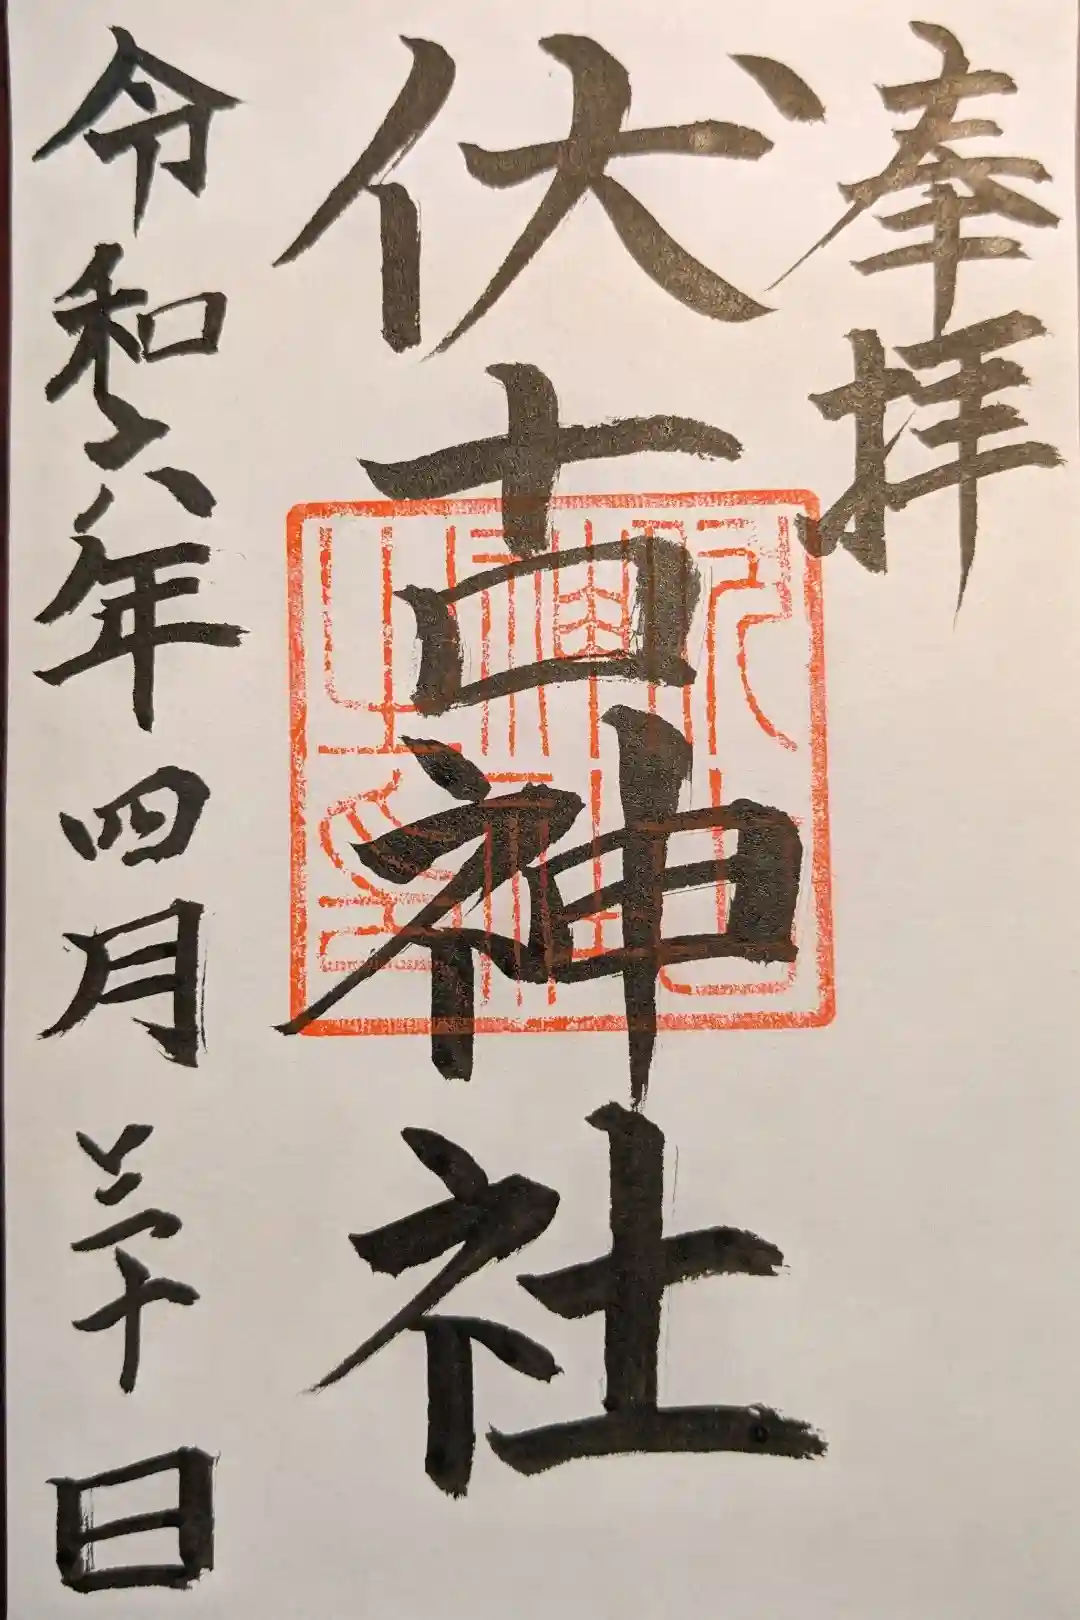 奉拝
伏古神社
令和六年四月三十日